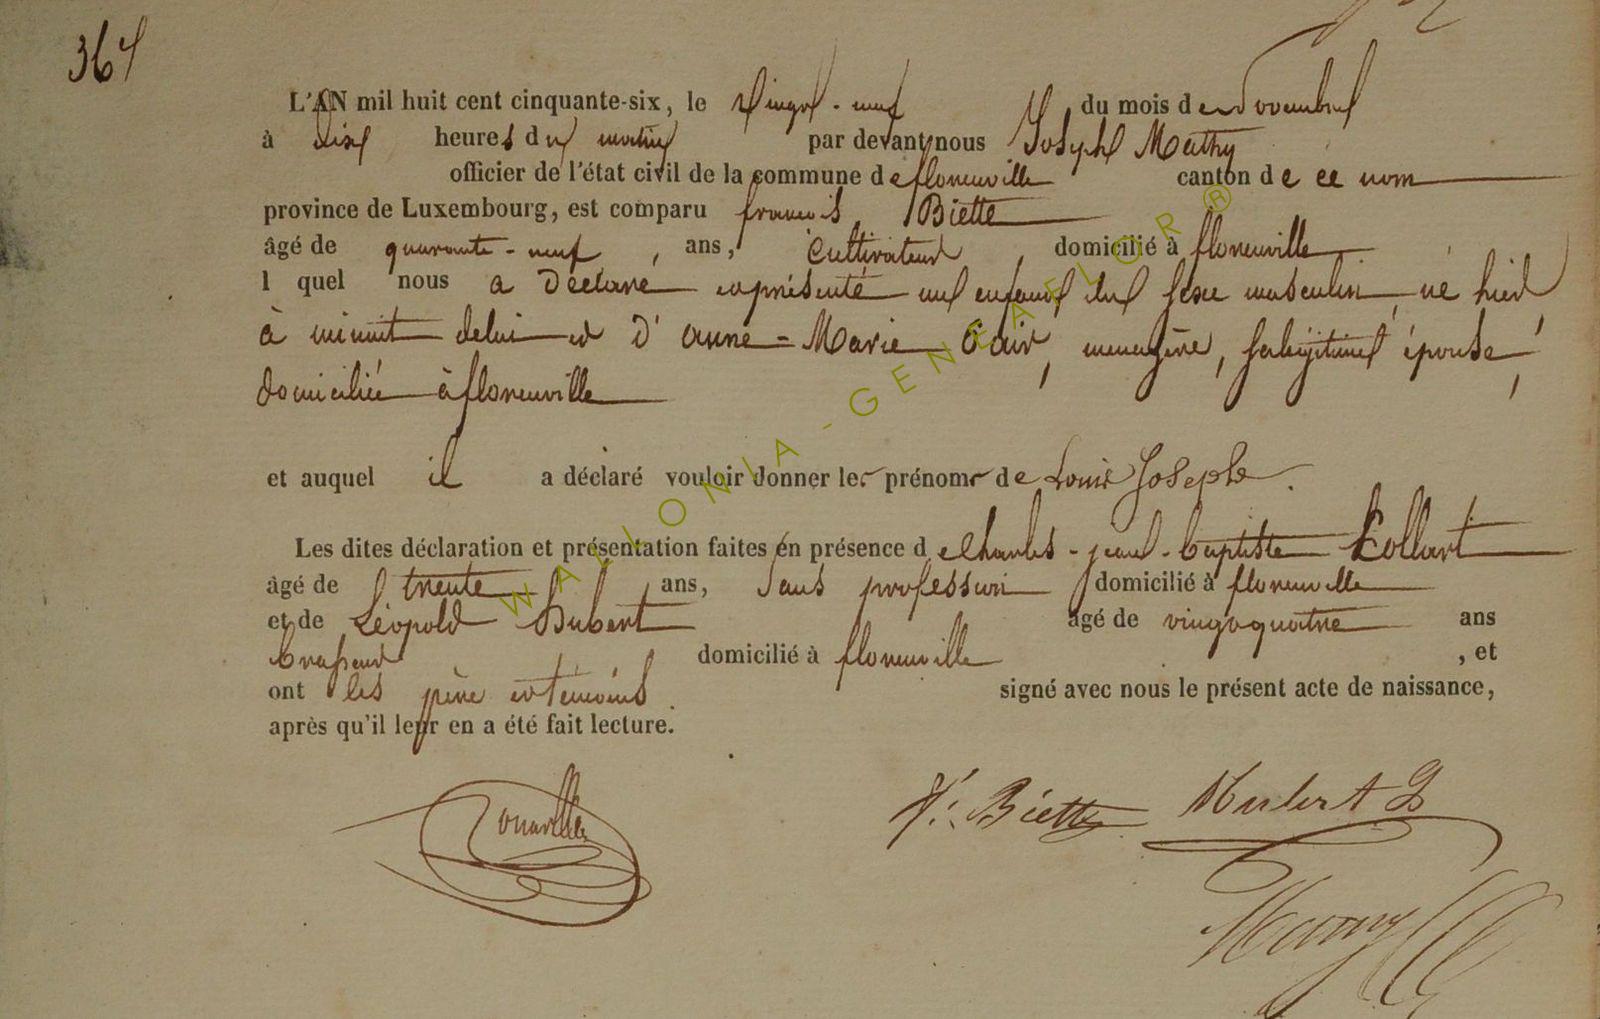 364
L'AN mil huit cent cinquante-six, le vingt-neuf du mois de Novembre
à dix heures du matin par devant nous Joseph Mathy
officier de l'état civil de la commune de florenville canton de ce nom
province de Luxembourg, est comparu francois Biette
âgé de quarante-neuf, ans, Cultivateur, domicilié à florenville
l quel nous a Déclaré et présenté un enfant du sexe masculin, né hier
à minuit de lui et D'anne-Marie, menagère, sa légitime épouse,
domiciliée à florenville
et auquel il a déclaré vouloir donner les prénoms de Louis Joseph.
Les dites déclaration et présentation faites en présence de Charles-jean-baptiste Collart
âgé de trente ans, sans profession domicilié à florenville
et de Léopold Hubert âgé de vingt quatre ans
brasseur domicilié à florenville, et
ont les père et témoins signé avec nous le présent acte de naissance,
après qu'il leur en a été fait lecture.
f. Biette Hubert L
WALLONIA-GENEAFLOR ®